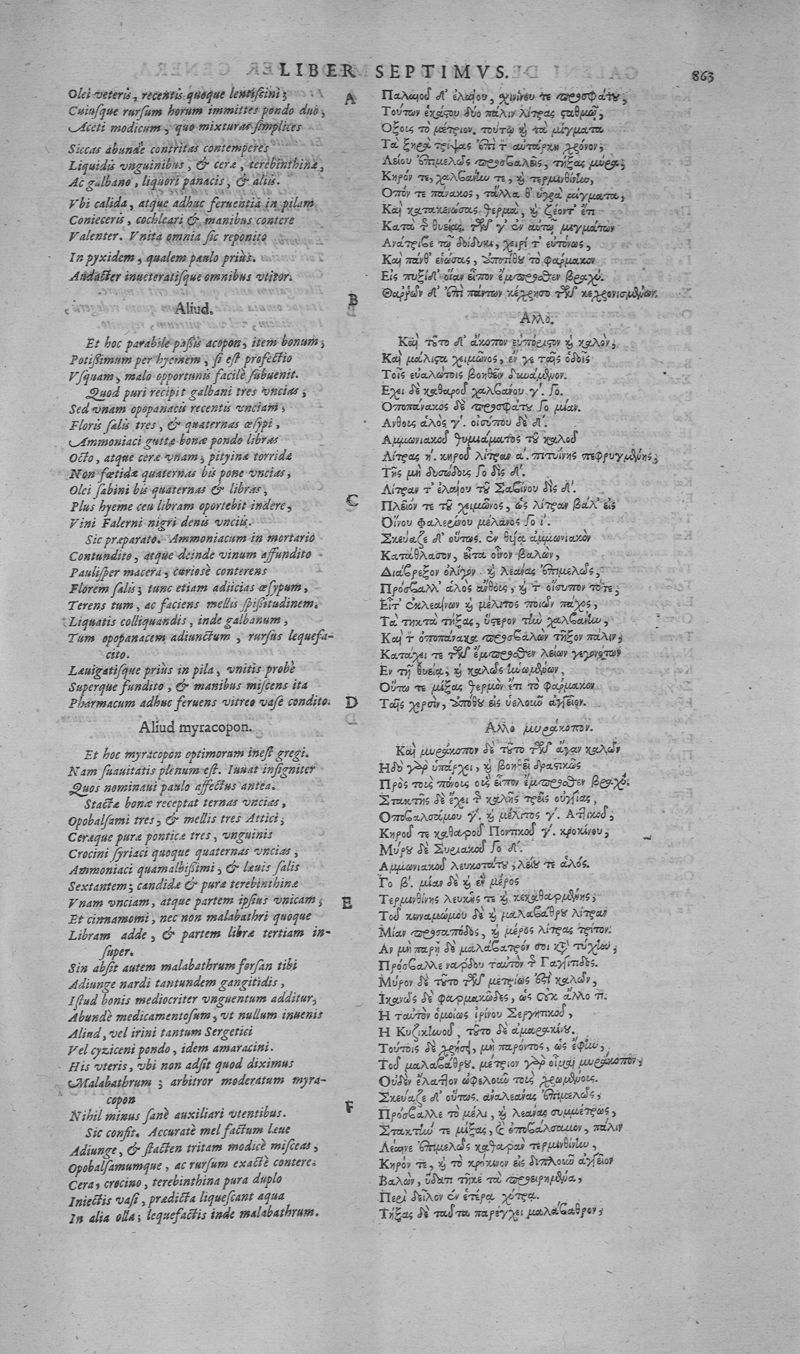 LIBER SEPTIMVS.
863
Olei veteris, recentis quoque lentiscini;
Cuiusque rursum horum immittes pondo duo,
Aceti modicum, quo mixturas simplices
Siccas abunde contritas contemperes
Liquidis vnguinibus, & ceræ, terebinthinæ,
Ac galbano, liquori panacis, & aliis.
Vbi calida, atque adhuc feruentia in pilam
Conieceris, cochleari & manibus contere
Valenter. Vnita omnia sic reponito
In pyxidem, qualem paulo priùs.
Audacter inueteratisque omnibus vtitor.
Aliud.
Et hoc parabile possis acopon, item bonum,
Potissimum per hyemem, si est profectio
Vsquam, malo opportunis facilè subuenit.
Quod puri recipit galbani tres vncias,
Sed vnam opopanacis recentis vnciam,
Floris salis tres, & quaternas œsypi,
Ammoniaci guttæ bonæ pondo libras
Octo, atque ceræ vnam; pityinæ torridæ
Non fœtidæ quaternas bis pone vncias,
Olei sabini bis quaternas & libras,
Plus hyeme ceu libram oportebit indere,
Vini Falerni nigri denis vnciis.
Sic præparato. Ammoniacum in mortario
Contundito, atque deinde vinum affundito
Paulisper macera, curiosè conterens
Florem salis; tunc etiam adiicias œsypum,
Terens tum, ac faciens mellis spissitudinem.
Liquatis colliquandis, inde galbanum,
Tum opopanacem adiunctum, rursus liquefa-
cito.
Læuigatisque priùs in pila, vnitis probè
Superque fundito, & manibus miscens ita
Pharmacum adhuc feruens vitreo vase condito.
Aliud myracopon.
Et hoc myracopon optimorum inest gregi.
Nam suauitatis plenum est. Iuuat insigniter
Quos nominaui paulo affectus antea.
Stactæ bonæ receptat ternas vncias,
Opobalsami tres, & mellis tres Attici;
Ceræque puræ ponticæ tres, vnguinis
Crocini syriaci quoque quaternas vncias,
Ammoniaci quamalbissimi, & læuis salis
Sextantem; candidæ & puræ terebinthinæ
Vnam vnciam, atque partem ipsius vnicam;
Et cinnamomi, nec non malabathri quoque
Libram adde, & partem libræ tertiam in-
super.
Sin absit autem malabathrum forsan tibi
Adiunge nardi tantundem gangitidis,
Istud bonis mediocriter vnguentum additur,
Abundè medicamentosum, vt nullum inuenis
Aliud, vel irini tantum Sergetici
Vel cyziceni pondo, idem amaracini.
His vteris, vbi non adsit quod diximus
Malabathrum; arbitror moderatum myra-
copon
Nihil minus sanè auxiliari vtentibus.
Sic confit. Accuratè mel factum læue
Adiunge, & stacten tritam modicè misceas,
Opobalsamumque, ac rursum exactè contere.
Cera, crocino, terebinthina pura duplo
Iniectis vasi, prædicta liquescant aqua
In alia olla; liquefactis inde malabathrum.
A
B
C
D
E
F
Παλαιοῦ δ' ἐλαίου, σχινίνου τε προσφάτου,
Τούτων ἑκάστου δύο πάλιν λίτρας σταθμῷ,
Ὄξους τὸ μέτριον. τούτῳ καὶ τὰ μίγματα
Τὰ ξηρὰ τρίψας ἐπὶ τ' αὐτάρκη χρόνον,
Λείου ἐπιμελῶς προσβαλεῖς, τήξας μύρα,
Κηρόν τε, χαλβάνην τε, καὶ τερμινθίνην,
Ὀπόν τε πάνακος, τἄλλα θ' ὑγρὰ μίγματα,
Καὶ κατακενώσας θερμὰ, καὶ ζέοντ' ἔτι
Ἀνάτριβε τῷ δοίδυκι, χειρί τ' εὐτόνως,
Καὶ πάνθ' ἑνώσας, ἀπόθου τὸ φάρμακον
Εἰς πυξίδ' οἵαν εἶπον ἔμπροσθεν βραχύ.
Θαῤῥῶν δ' ἐπὶ πάντων κέχρησο τῶν κεχρονισμένων.
Ἄλλο.
Καὶ τοῦτο δ' ἄκοπον εὐπόριστον καὶ καλὸν,
Καὶ μάλιστα χειμῶνος, ἔν γε ταῖς ὁδοῖς
Τοῖς εὐαλώτοις βοηθεῖν δυνάμενον.
Ἔχει δὲ καθαροῦ χαλβάνου γ'. Γο.
Ὀποπάνακος δὲ προσφάτου Γο μίαν.
Ἄνθους ἁλὸς γ'. οἰσύπου δὲ δ'.
Ἀμμωνιακοῦ θυμιάματος τοῦ καλοῦ
Λίτρας η'. κηροῦ λίτραν α'. πιτυΐνης πεφρυγμένης,
Τῆς μὴ δυσώδους Γο δὶς δ'.
Λίτραν τ' ἐλαίου τοῦ Σαβίνου δὶς δ'.
Πλεῖόν τε τοῦ χειμῶνος, ὡς λίτραν βάλ' εἰς
Οἴνου φαλερίνου μέλανος Γο ι'.
Σκεύαζε δ' οὕτως. ἐν θυίᾳ ἀμμωνιακὸν
Κατάθλασον, εἶτα οἶνον βαλὼν,
Διάβρεξον ὀλίγον καὶ λεάνας ἐπιμελῶς,
Πρόσβαλλ' ἁλὸς ἄνθους, καὶ τ' οἴσυπον τότε,
Εἶτ' ἐκλεαίνων καὶ μέλιτος ποιῶν πάχος,
Τὰ τηκτὰ τήξας, ὕστερον τὴν χαλβάνην,
Καὶ τ' ὀποπάνακα προσβαλὼν τῆξον πάλιν,
Κατάχει τε τῶν ἔμπροσθεν λείων γεγονότων
Ἐν τῇ θυείᾳ, καὶ καλῶς ἡνωμένων,
Οὕτω τε μίξας θερμὸν ἔτι τὸ φάρμακον
Ταῖς χερσὶν, ἀπόθου εἰς ὑελοῦν ἀγγεῖον.
Ἄλλο μυράκοπον.
Καὶ μυράκοπον δὲ τοῦτο τῶν ἄγαν καλῶν
Ἡδὺ γὰρ ὑπάρχει, καὶ βοηθεῖ δραστικῶς
Πρὸς τοὺς πόνους οὓς εἶπον ἔμπροσθεν βραχύ.
Στακτῆς δὲ ἔχει τῆς καλῆς τρεῖς οὐγγίας,
Ὀποβαλσάμου γ'. καὶ μέλιτος γ'. Ἀττικοῦ,
Κηροῦ τε καθαροῦ Ποντικοῦ γ'. κροκίνου,
Μύρου δὲ Συριακοῦ Γο δ'.
Ἀμμωνιακοῦ λευκοτάτου, λείου τε ἁλός.
Γο β'. μίαν δὲ καὶ ἓν μέρος
Τερμινθίνης λευκῆς τε καὶ κεκαθαρμένης,
Τοῦ κιναμώμου δὲ καὶ μαλαβάθρου λίτραν
Ἂν μὴ παρῇ δὲ μαλάβαθρόν σοι κατὰ τύχην,
Πρόσβαλλε νάρδου ταὐτὸν τῆς Γαγγίτιδος.
Μύρον δὲ τοῦτο τῶν μετρίως ἐστὶ καλῶν,
Ἱκανῶς δὲ φαρμακῶδες, ὡς οὐκ ἄλλο τι.
Ἢ ταὐτὸν ὁμοίως ἰρίνου Σεργητικοῦ,
Ἢ Κυζικηνοῦ, τοῦτο δὲ ἀμαρακίνου.
Τούτοις δὲ χρήσῃ, μὴ παρόντος, ὡς ἔφην,
Τοῦ μαλαβάθρου. μέτριον γὰρ οἶμαι μυράκοπον,
Οὐδὲν ἔλαττον ὠφελοῦν τοῖς χρωμένοις.
Σκεύαζε δ' οὕτως. ἀναλεάνας ἐπιμελῶς,
Πρόσβαλλε τὸ μέλι, καὶ λεάνας συμμέτρως,
Στακτήν τε μίξας, καὶ ὀποβάλσαμον, πάλιν
Λέαινε ἐπιμελῶς καθαρὰν τερμινθίνην,
Κηρόν τε, καὶ τὸ κρόκινον εἰς διπλοῦν ἀγγεῖον
Βαλὼν, ὕδατι τῆκε τὰ προειρημένα,
Τήξας δὲ ταῦτα παρέγχει μαλάβαθρον,